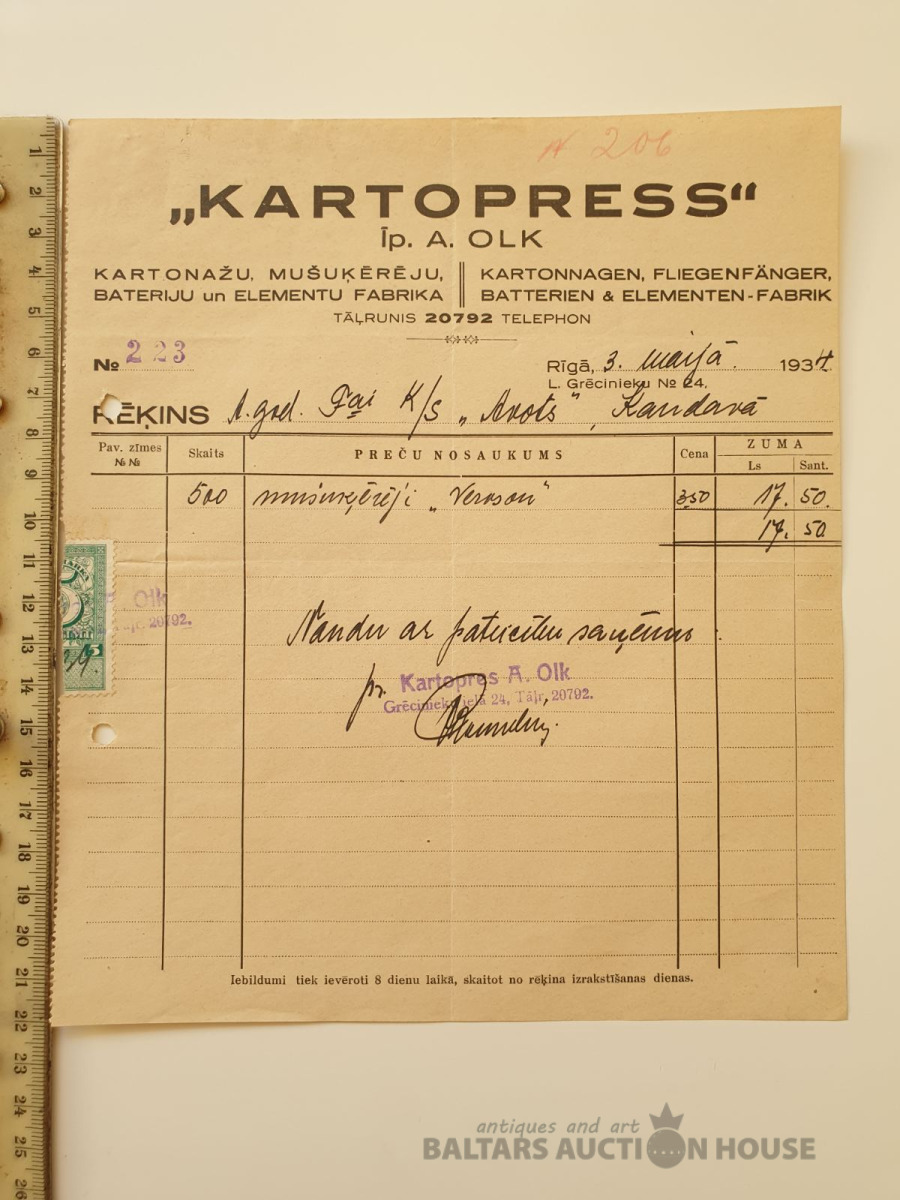 № 206
„KARTOPRESS“
Īp. A. OLK
KARTONAŽU, MUŠUĶĒRĒJU,
BATERIJU un ELEMENTU FABRIKA
KARTONNAGEN, FLIEGENFÄNGER,
BATTERIEN & ELEMENTEN-FABRIK
TĀĻRUNIS 20792 TELEPHON
№ 223
Rīgā, 3. maijā. 1934.
L. Grēcinieku № 24.
RĒĶINS A. god. K/S „Avots“, Kandavā
Pav. zīmes №№ Skaits PREČU NOSAUKUMS Cena ZUMA
Ls Sant.
500 mušuķērēji 3,50 17. 50.
17. 50
Olk
20792.
5
Naudu ar pateicību saņēmu
pr. Kartopres A. Olk
Grēcinieku ielā 24, Tāļr. 20792.
Iebildumi tiek ievēroti 8 dienu laikā, skaitot no rēķina izrakstīšanas dienas.
1 2 3 4 5 6 7 8 9 10 11 12 13 14 15 16 17 18 19 20 21 22 23 24 25 26
antiques and art
BALTARS AUCTION HOUSE